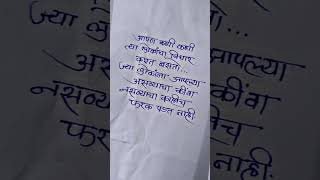 आपण कधी कधी
त्या लोकांचा विचार
करत बसतो...
ज्या लोकांना आपल्या
असण्याचा कींवा
नसण्याचा काहीच
फरक पडत नाही